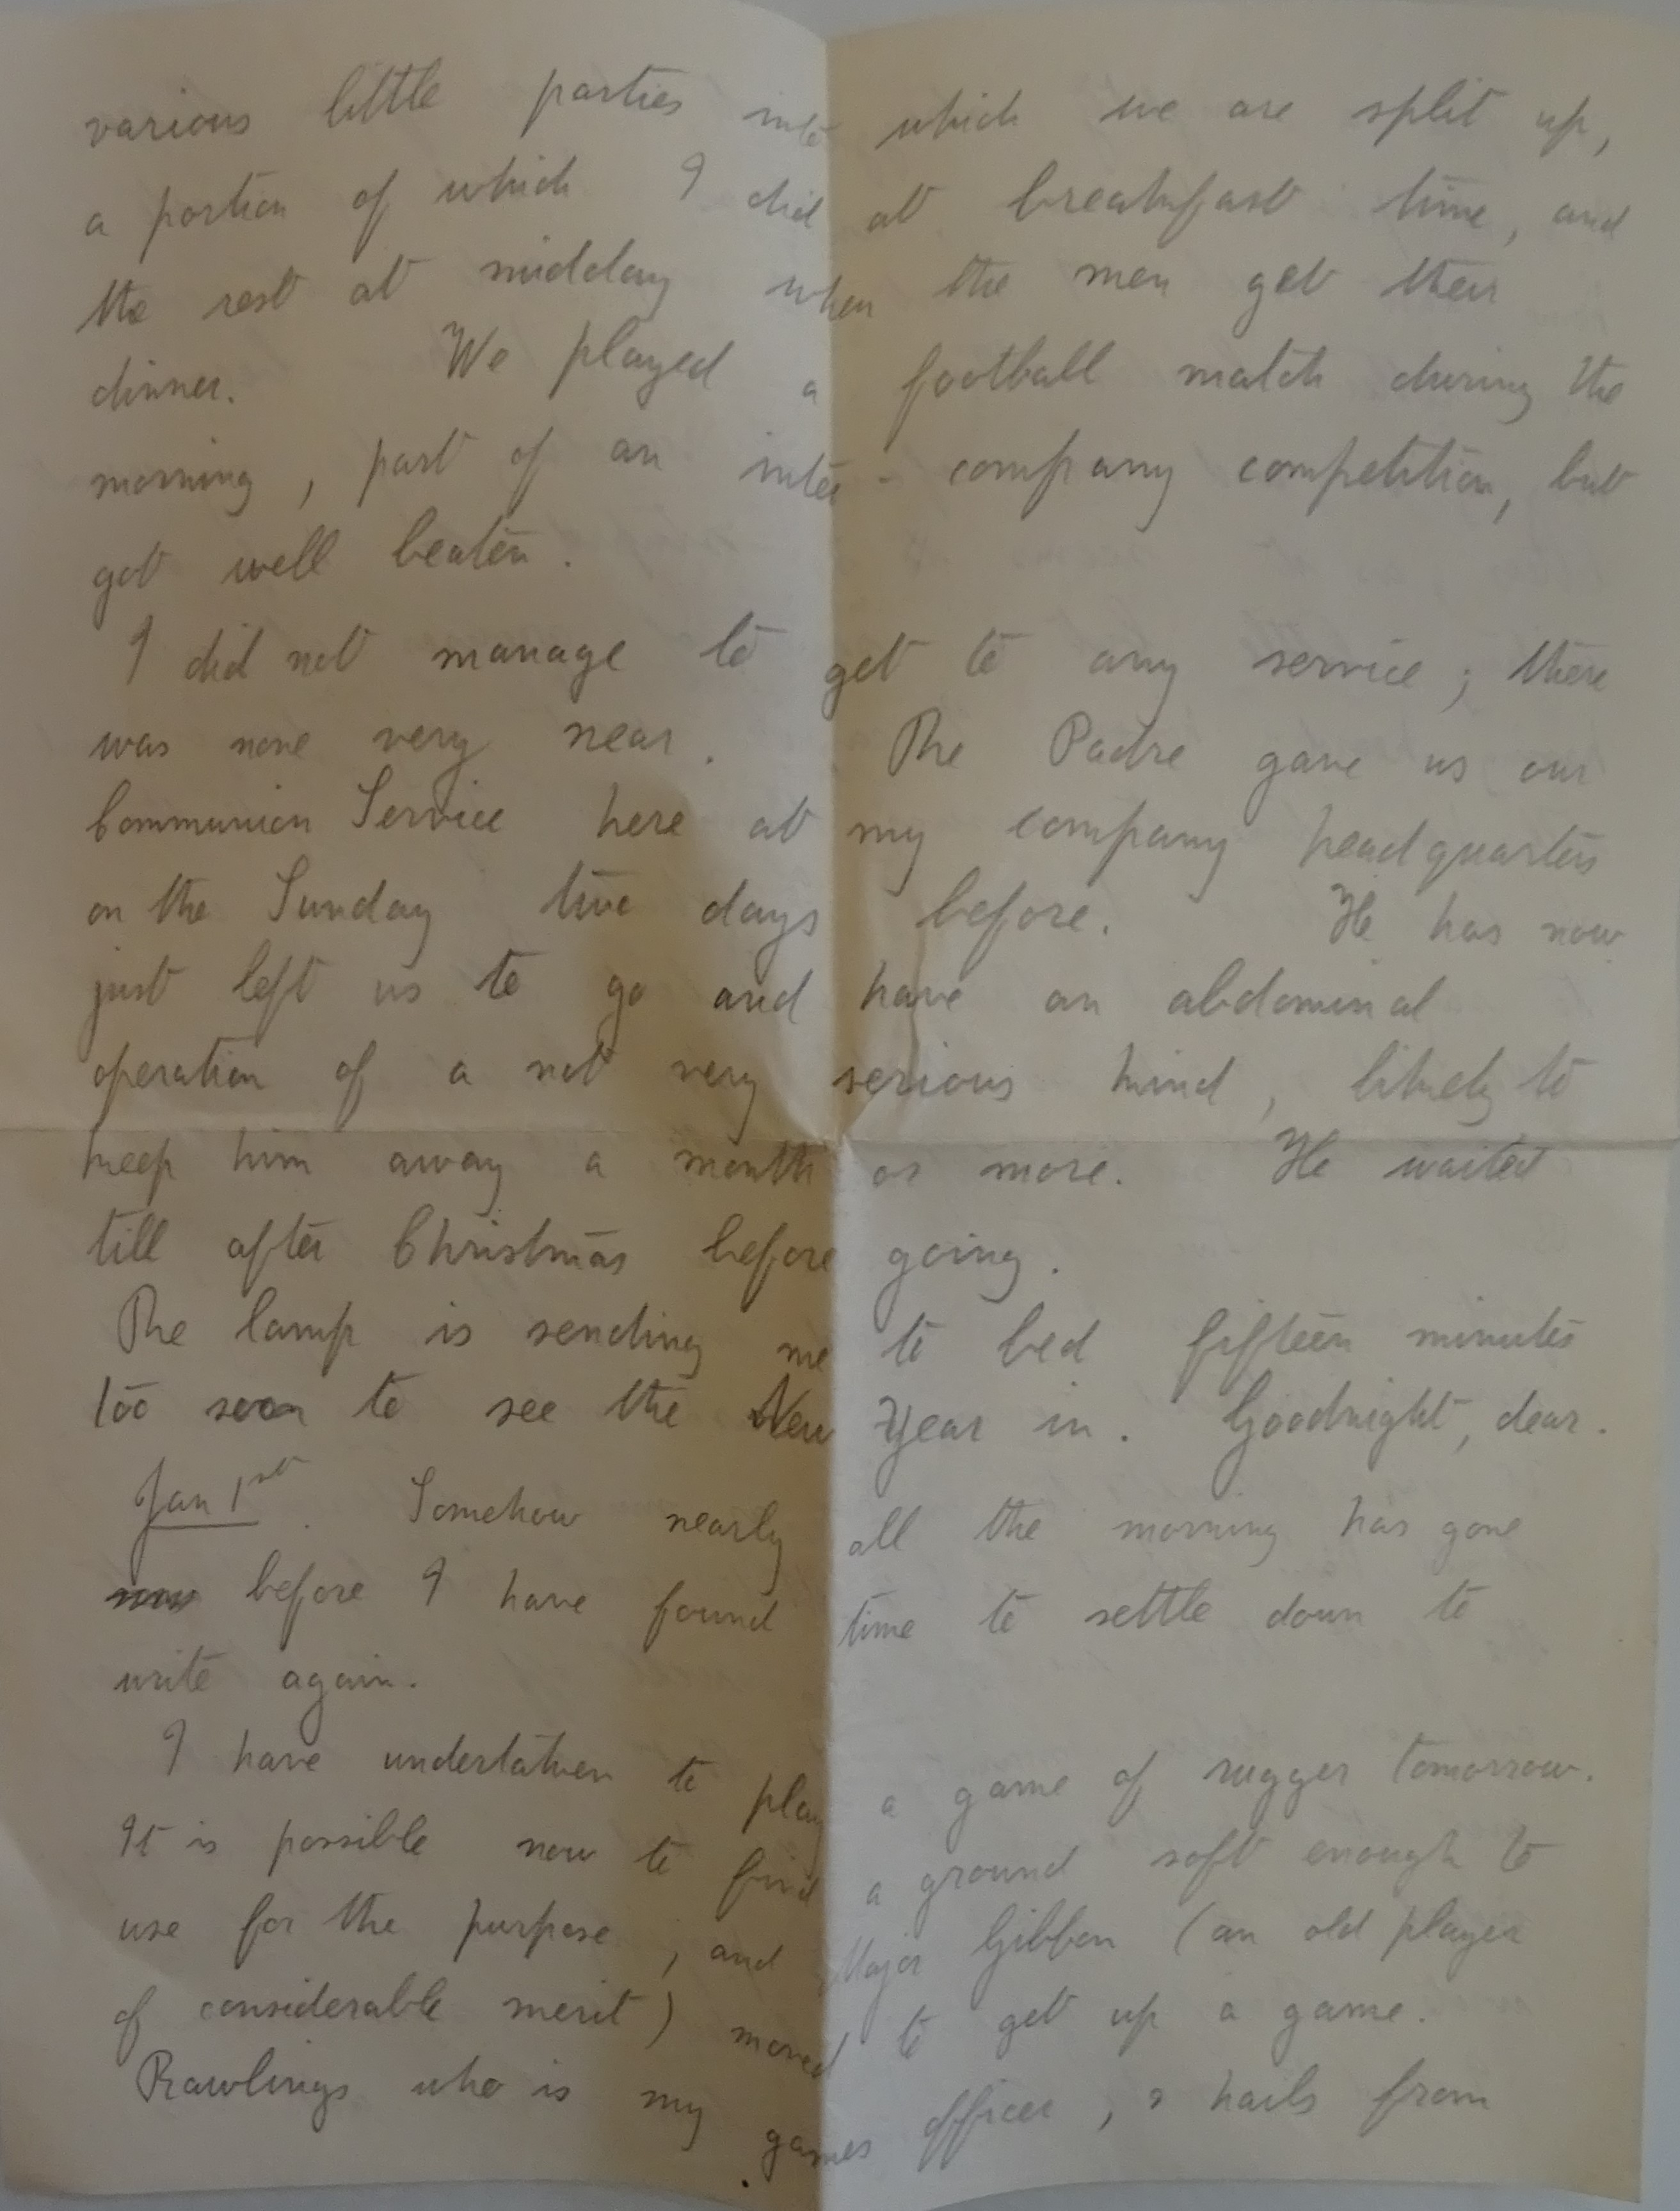 various little parties into which we are split up,
a portion of which I did at breakfast time, and
the rest at midday when the men get their
dinner. We played a football match during the
morning, part of an inter-company competition, but
got well beaten.
I did not manage to get to any service; there
was none very near. The Padre gave us our
Communion Service here at my company headquarters
on the Sunday two days before. He has now
just left us to go and have an abdominal
operation of a not very serious kind, likely to
keep him away a month or more. He waited
till after Christmas before going.
The lamp is sending me to bed fifteen minutes
too soon to see the New Year in. Goodnight, dear.
Jan 1st. Somehow nearly all the morning has gone
before I have found time to settle down to
write again.
I have undertaken to play a game of rugger tomorrow.
It is possible now to find a ground soft enough to
use for the purpose, and Major Gibbon (an old player
of considerable merit) moved to get up a game.
Rawlings who is my games officer, & hails from